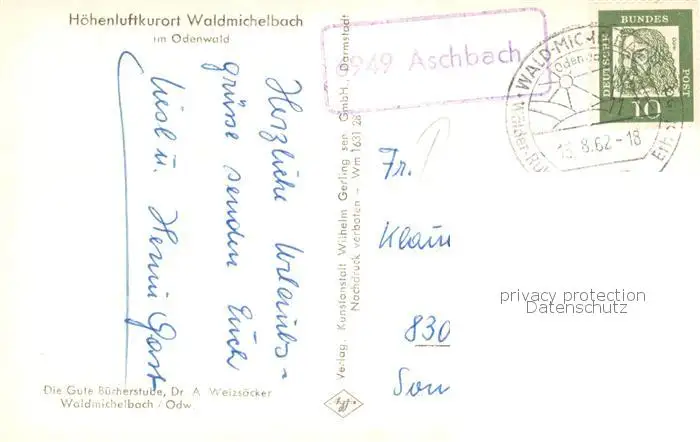 Höhenluftkurort Waldmichelbach
im Odenwald
Herzliche Urlaubs-
grüsse senden Euch
Liesl u. Henni Gast
Die Gute Bücherstube, Dr. A. Weizsäcker
Waldmichelbach / Odw.
Verlag: Kunstanstalt Wilhelm Gerling sen. GmbH., Darmstadt
Nachdruck verboten - Wm 1631 28
6949 Aschbach
WALD-MICH
Odenwa
Wälder-Ruh
Erh
13.8.62-18
DEUTSCHE
BUNDES
POST
10
Fr.
Klau
830
Son
privacy protection
Datenschutz